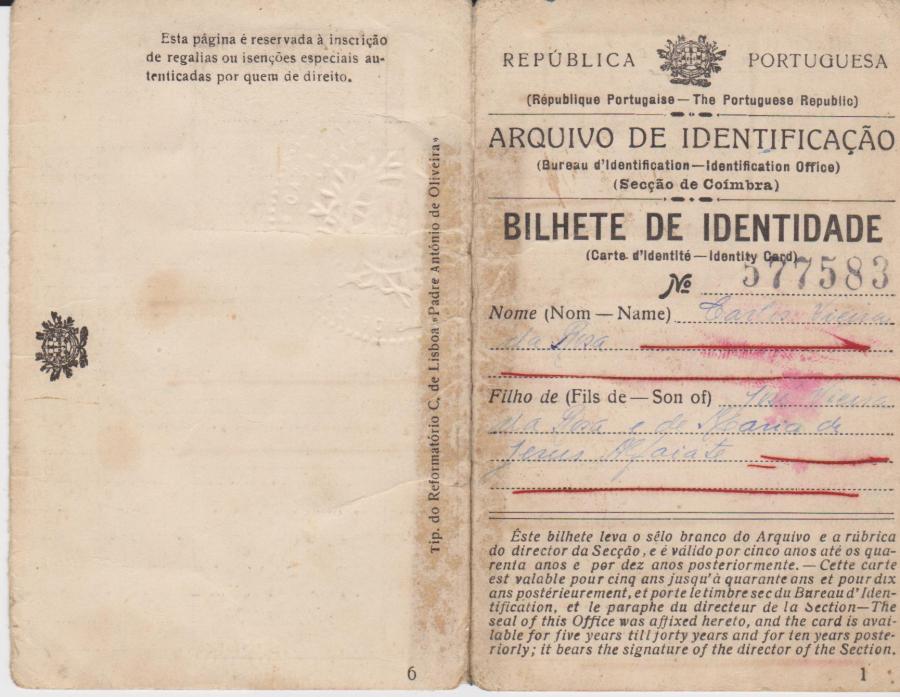 Esta página é reservada à inscrição
de regalias ou isenções especiais au-
tenticadas por quem de direito.
Tip. do Reformatório C. de Lisboa «Padre António de Oliveira»
6
REPÚBLICA PORTUGUESA
(République Portugaise—The Portuguese Republic)
ARQUIVO DE IDENTIFICAÇÃO
(Bureau d'Identification—Identification Office)
(Secção de Coímbra)
BILHETE DE IDENTIDADE
(Carte d'Identité—Identity Card)
Nº 577583
Nome (Nom — Name) Carlos Vieira
da Rosa
Filho de (Fils de — Son of) José Vieira
da Rosa e de Maria de
Jesus Alfaiate
Êste bilhete leva o sêlo branco do Arquivo e a rúbrica
do director da Secção, e é válido por cinco anos até os qua-
renta anos e por dez anos posteriormente. — Cette carte
est valable pour cinq ans jusqu'à quarante ans et pour dix
ans postérieurement, et porte le timbre sec du Bureau d'Iden-
tification, et le paraphe du directeur de la Section—The
seal of this Office was affixed hereto, and the card is avai-
lable for five years till forty years and for ten years poste-
riorly; it bears the signature of the director of the Section.
1